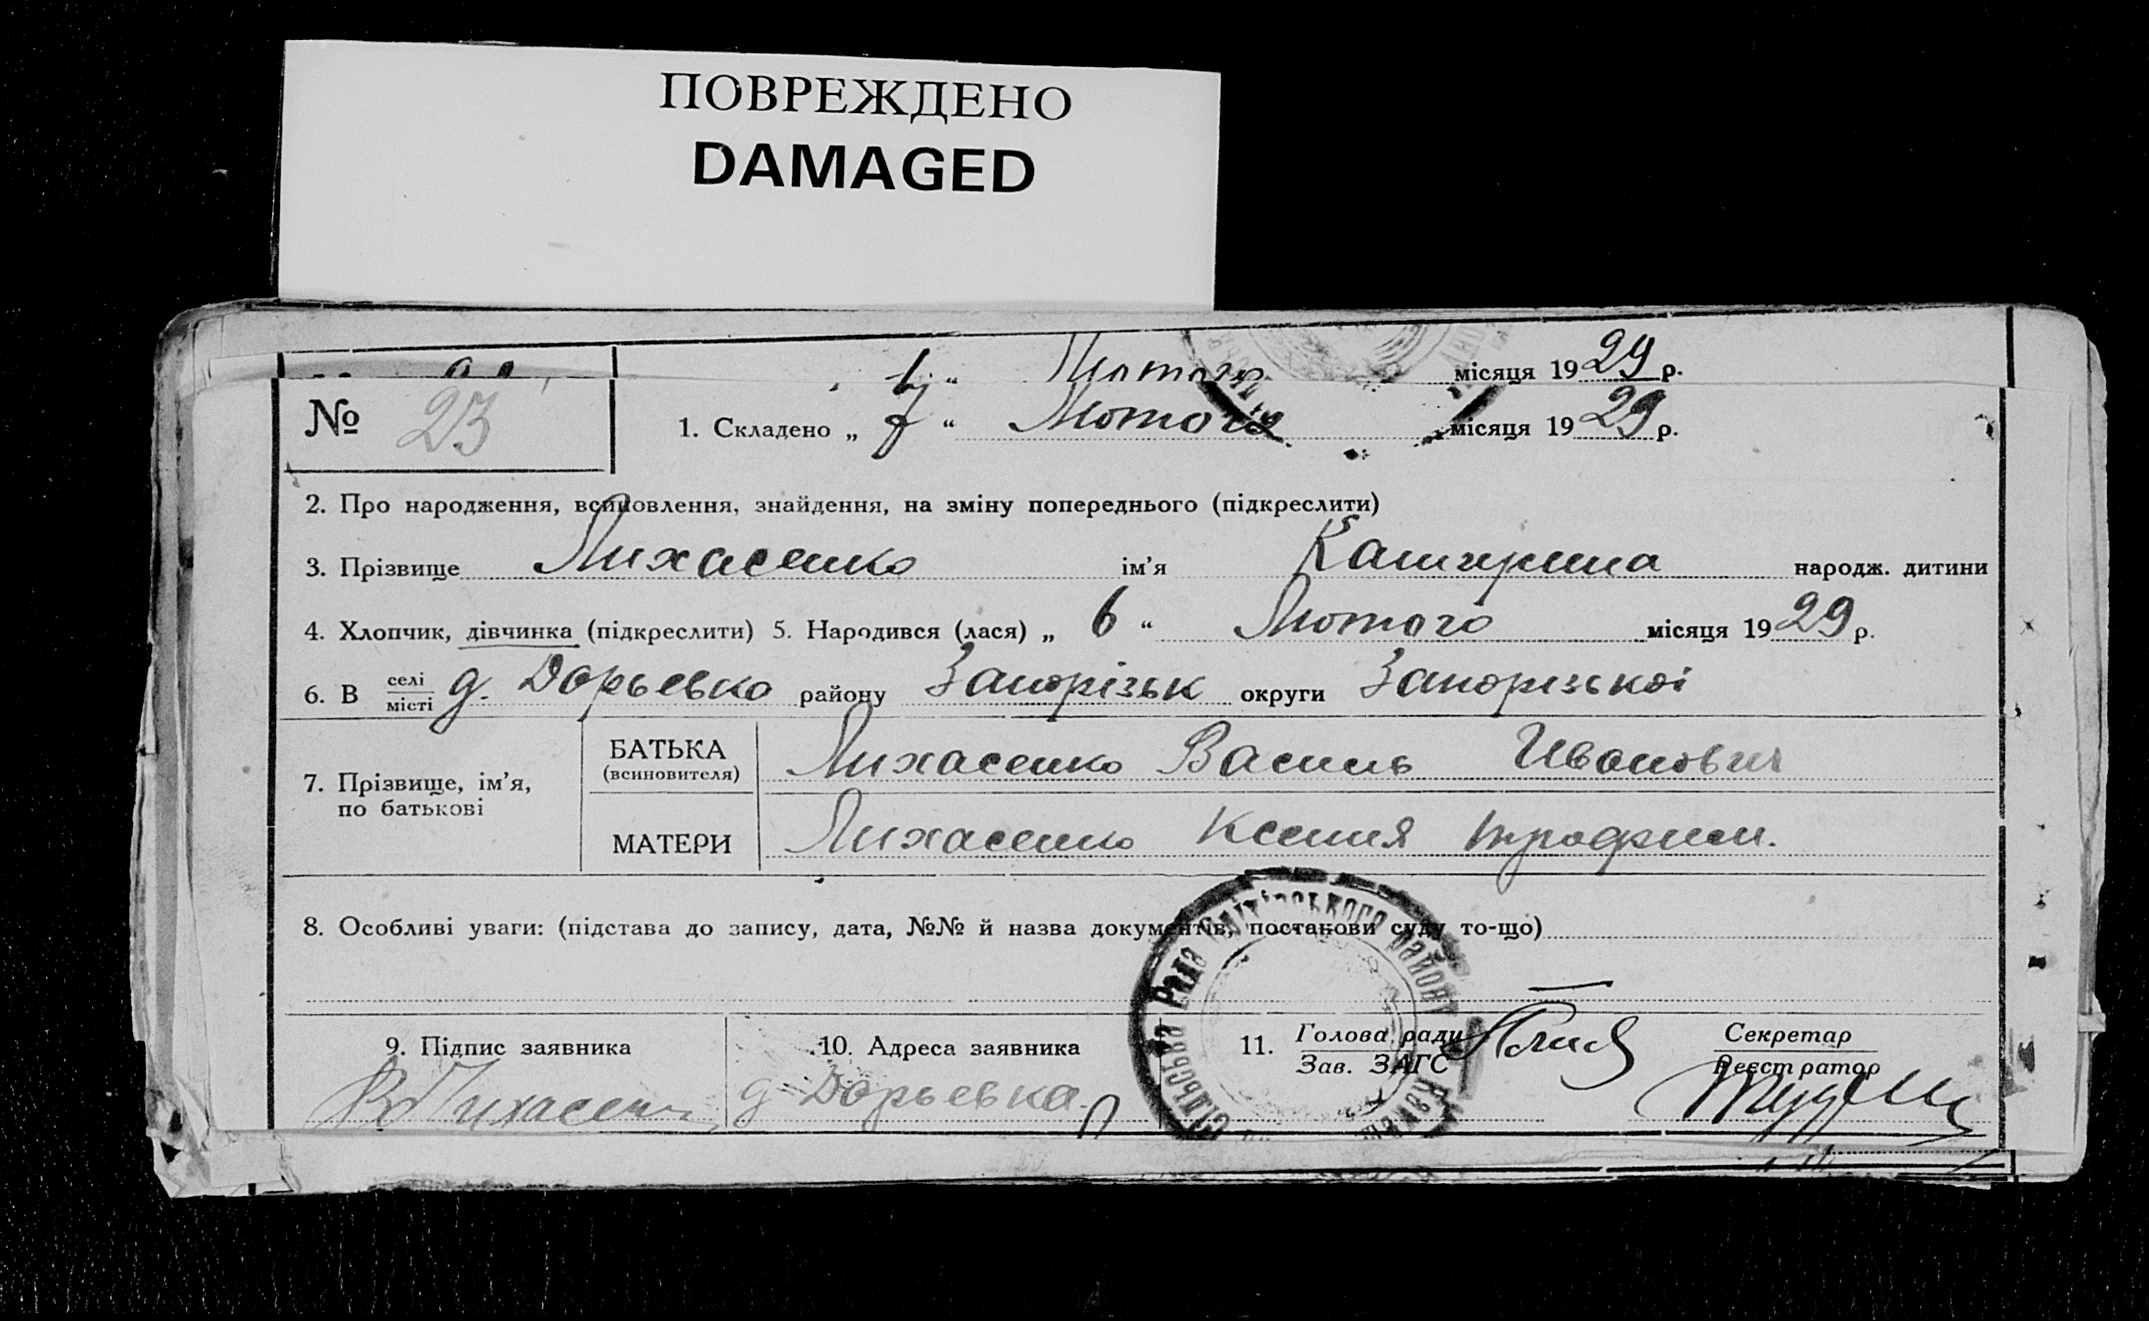 ПОВРЕЖДЕНО
DAMAGED
Лютого місяця 1929 р.
№ 23
1. Складено „ 7 “ Лютого місяця 1929 р.
2. Про народження, всиновлення, знайдення, на зміну попереднього (підкреслити)
3. Прізвище Лихасенко ім’я Катерина народж. дитини
4. Хлопчик, дівчинка (підкреслити) 5. Народився (лася) „ 6 “ Лютого місяця 1929 р.
6. В селі місті д. Дарьевко району Запорізьк округи Запорізькоі
7. Прізвище, ім’я, по батькові
БАТЬКА (всиновителя) Лихасенко Василь Иванович
МАТЕРИ Лихасенко Ксения Трофим.
8. Особливі уваги: (підстава до запису, дата, №№ й назва документів, постанови суду то-що)
Сільська Рада район
9. Підпис заявника 10. Адреса заявника 11. Голова ради Зав. ЗАГС Секретар Реєстратор
В Лихасен д Дарьевка